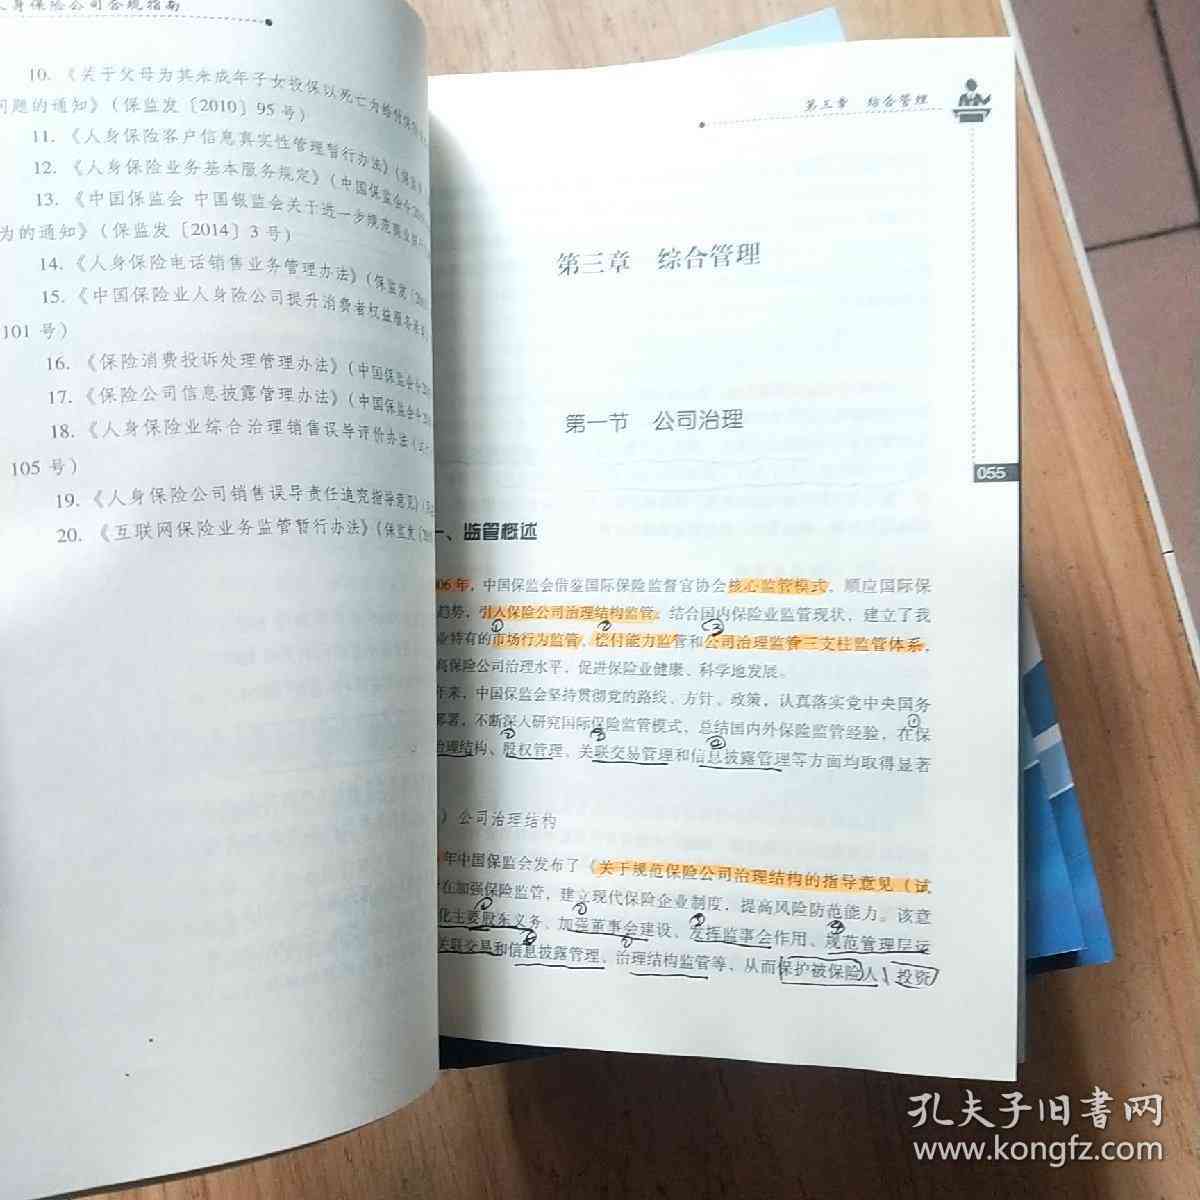 人身保险公司合规指南
10. 《关于父母为其未成年子女投保以死亡为给付保
问题的通知》（保监发〔2010〕95 号）
11. 《人身保险客户信息真实性管理暂行办法》（保监
12. 《人身保险业务基本服务规定》（中国保监会令
13. 《中国保监会 中国银监会关于进一步规范商业
为的通知》（保监发〔2014〕3 号）
14. 《人身保险电话销售业务管理办法》（保监发〔20
15. 《中国保险业人身险公司提升消费者权益服务
101 号）
16. 《保险消费投诉处理管理办法》（中国保监会令20
17. 《保险公司信息披露管理办法》（中国保监会令20
18. 《人身保险业综合治理销售误导评价办法（试
105 号）
19. 《人身保险公司销售误导责任追究指导意见》（
20. 《互联网保险业务监管暂行办法》（保监发〔20
第三章 综合管理
第三章 综合管理
第一节 公司治理
055
一、监管概述
06 年，中国保监会借鉴国际保险监督官协会核心监管模式，顺应国际保
趋势，引入保险公司治理结构监管。结合国内保险业监管现状，建立了我
业特有的市场行为监管、偿付能力监管和公司治理监管三支柱监管体系，
高保险公司治理水平，促进保险业健康、科学地发展。
年来，中国保监会坚持贯彻党的路线、方针、政策，认真落实党中央国务
部署，不断深入研究国际保险监管模式，总结国内外保险监管经验，在保
治理结构、股权管理、关联交易管理和信息披露管理等方面均取得显著
）公司治理结构
年中国保监会发布了《关于规范保险公司治理结构的指导意见（试
在加强保险监管，建立现代保险企业制度，提高风险防范能力。该意
化主要股东义务、加强董事会建设、发挥监事会作用、规范管理层运
关联交易和信息披露管理、治理结构监管等，从而保护被保险人、投资
孔夫子旧书网
www.kongfz.com